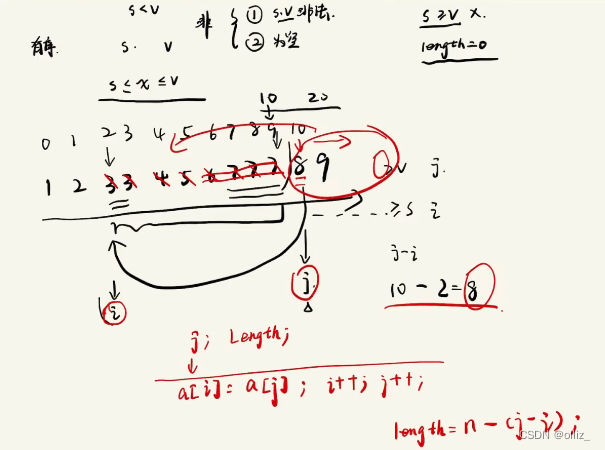 s<v
非 { ① s.v 非法.
② 为空
s≥v x.
length=0
有序. s. v
s ≤ x ≤ v
10 20
0 1 2 3 4 5 6 7 8 9 10
1 2 3 3 4 5 6 7 7 7 8 9 >v j.
≥s i
j-i
10-2=8
i j.
j; Length;
a[i]= a[j]; i++; j++;
length= n-(j-i);
CSDN @olliz_